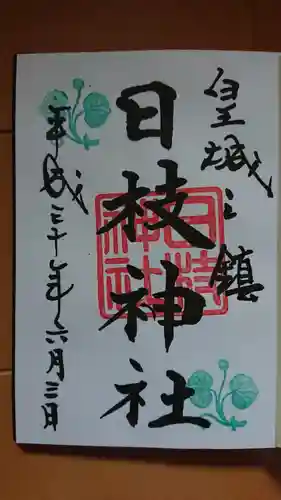 皇城之鎮
日枝神社
日枝神社
平成三十年六月三日